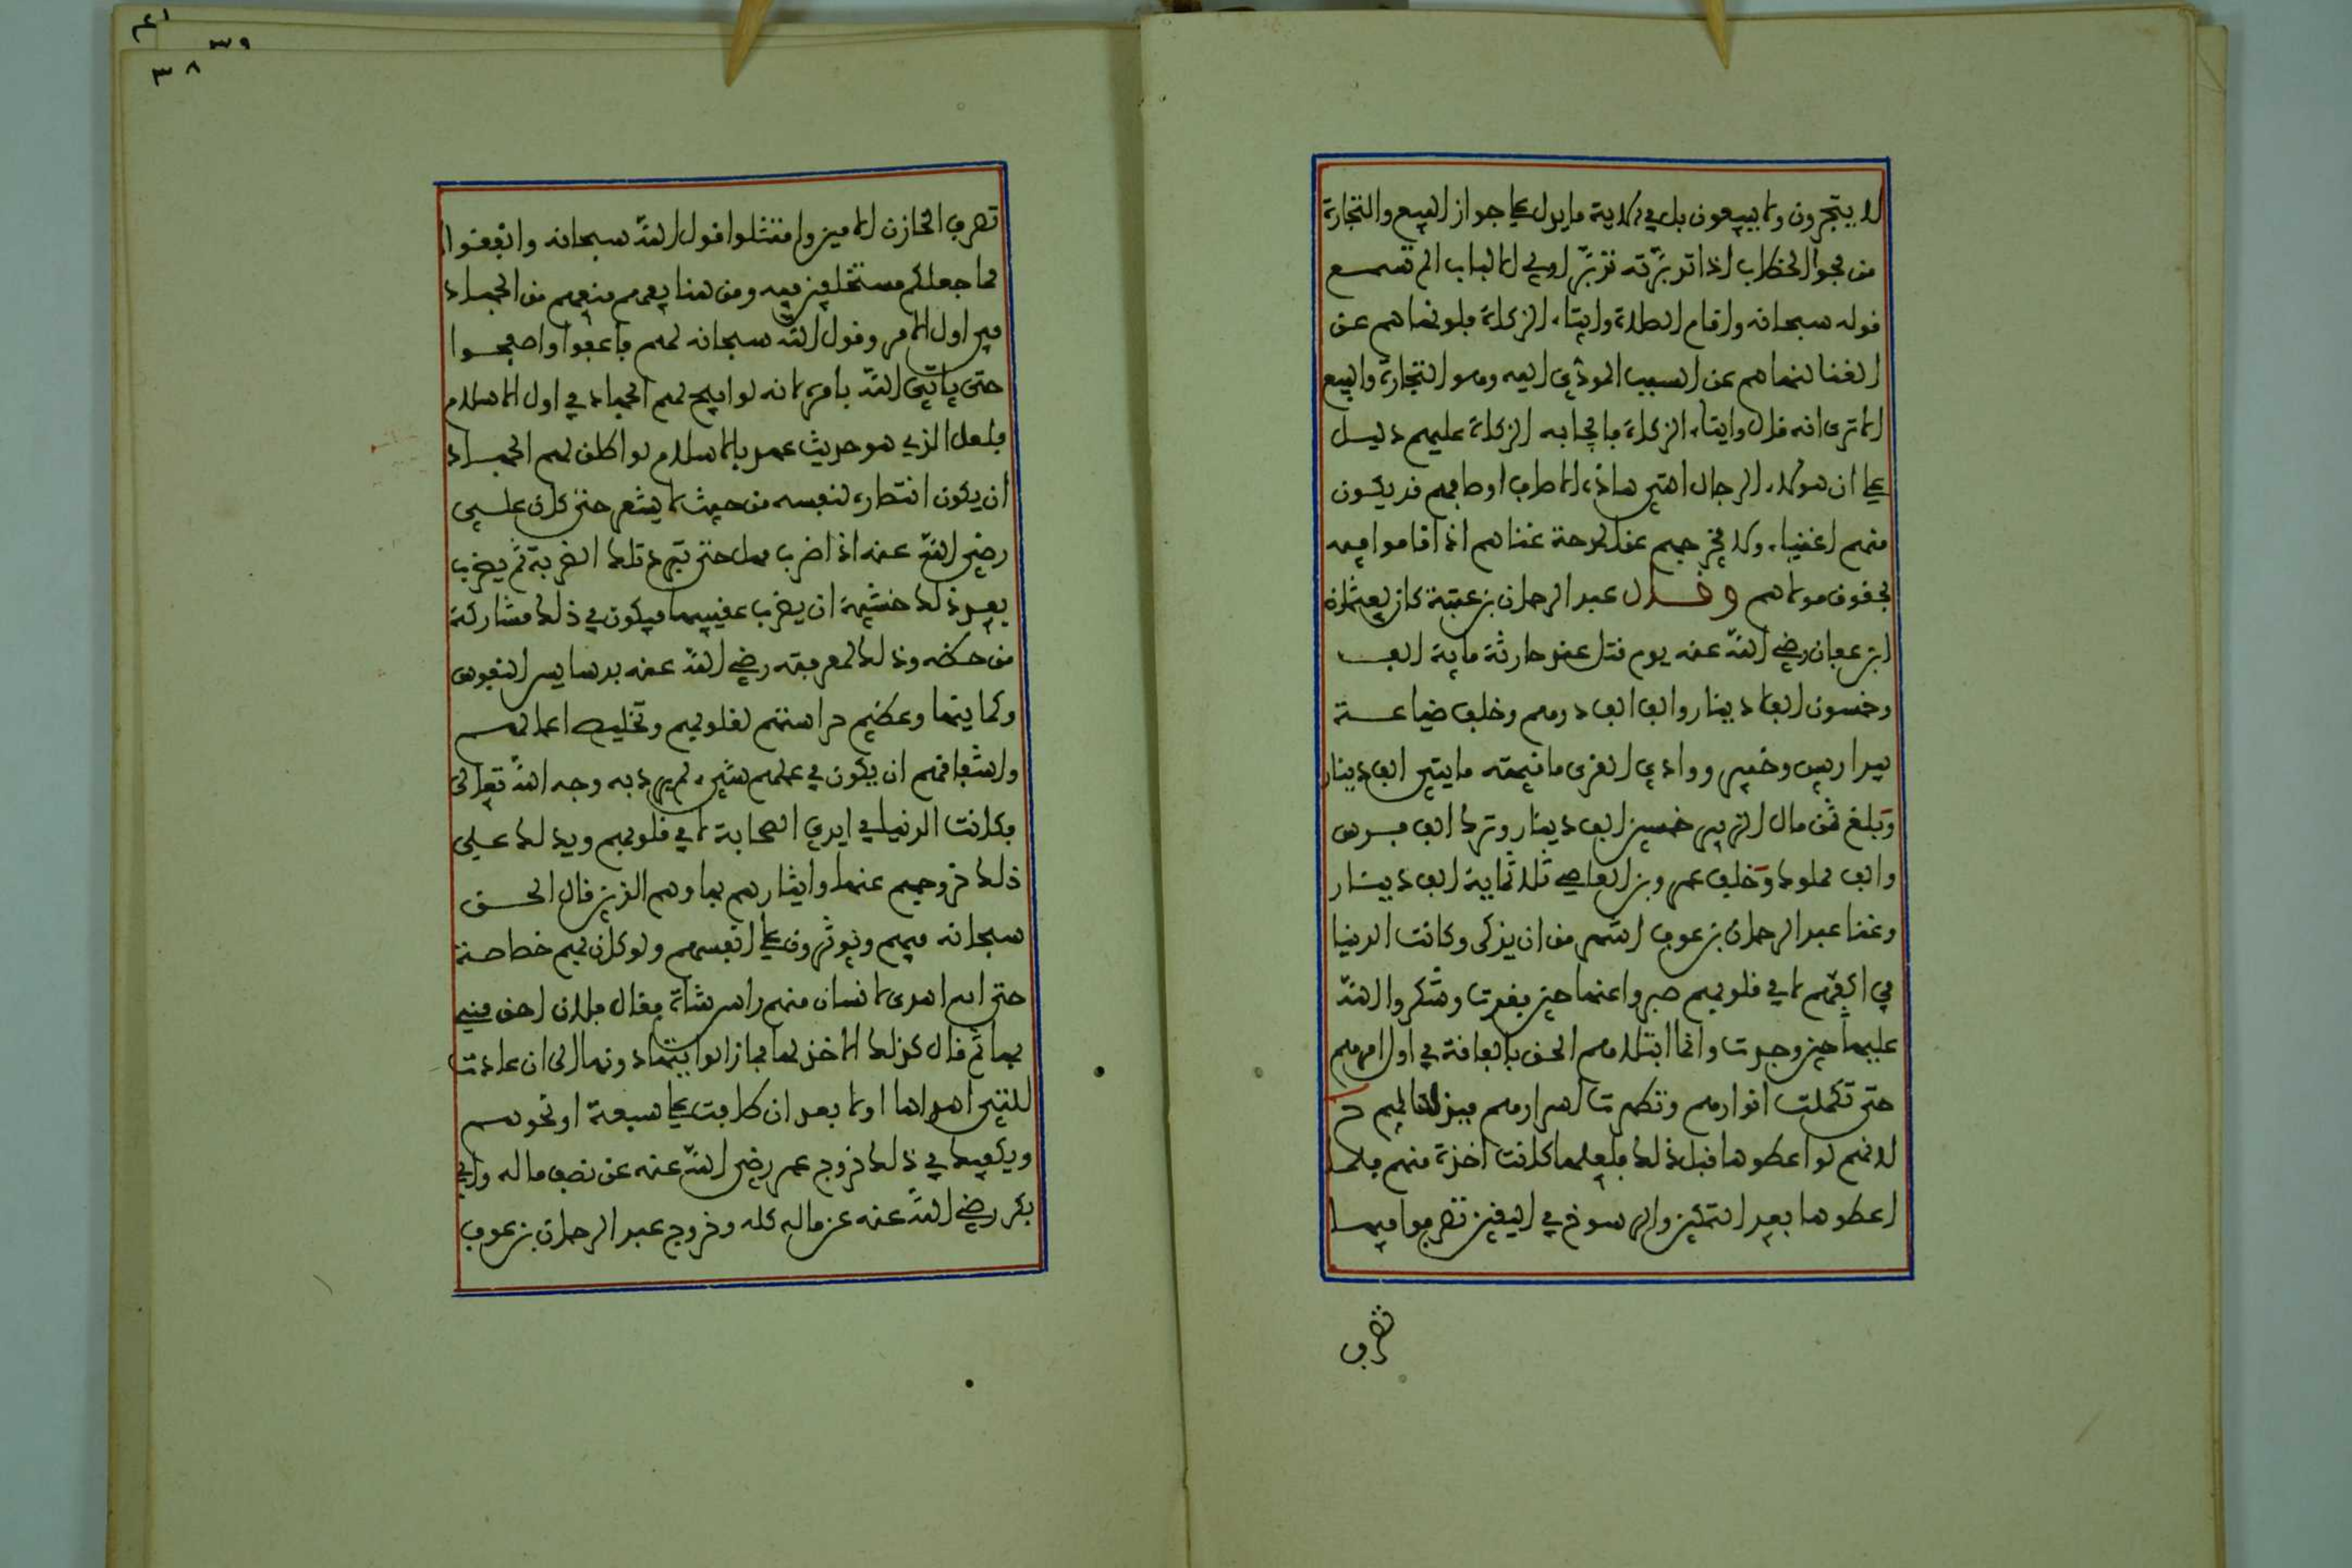 لا يتجرون ولا يبيعون بل في الاية ما يدل على جواز البيع والتجارة
من فحوا الخطاب اذا تدبرته تدبر اولي الالباب الم تسمع
قوله سبحانه واقام الصلاة وايتاء الزكاة فلو نهاهم عن
الغنا لنهاهم عن السبب المودي اليه وهو التجارة والبيع
الا ترى انه قال وايتاء الزكاة فايجابه الزكاة عليهم دليل
على ان هولاء الرجال الذين هذه الاوصاف اوصافهم قد يكون
منهم اغنياء ولا يخرجهم عن المدحة غناهم اذا قاموا فيه
بحقوق مولاهم وقال عبد الرحمان بن عتبة كان لعثمان
ابن عفان رضي الله عنه يوم قتل عند حارثة ماية الف
وخمسون الف دينار والف الف درهم وخلف ضياعه
بيراريس وخيبر ووادي القرى ما قيمته مايتي الف دينار
وبلغ ثمن مال الزبير خمسين الف دينار وترك الف فرس
والف مملوك وخلف عمرو بن العاصي ثلاثماية الف دينار
وغنا عبد الرحمان بن عوف اشهر من ان يذكر وكانت الدنيا
في اكفهم لا في قلوبهم صبروا عنها حين فقدت وشكروا الله
عليها حين وجدت وانما ابتلاهم الحق بالفاقة في اول امرهم
حتى تكملت انوارهم وتطهرت اسرارهم فبذلها لهم ح
لانهم لو اعطوها قبل ذلك فلعلها كانت اخذة منهم فلما
اعطوها بعد التمكين والرسوخ في اليقين تصرفوا فيها
تصرف
تصرف الخازن الامين وامتثلوا قول الله سبحانه وانفقوا
مما جعلكم مستخلفين فيه ومن هنا يفهم منعهم من الجهاد
في اول الامر وقول الله سبحانه لهم فاعفوا واصفحوا
حتى ياتي الله بامره لانه لو ابيح لهم الجهاد في اول الاسلام
فلعل الذي هو حديث عهد بالاسلام لو اطلق لهم الجهاد
ان يكون انتصاره لنفسه من حيث لا يشعر حتى كان علي
رضي الله عنه اذا ضرب مهل حتى تبرد تلك الضربة ثم يضرب
بعد ذلك خشية ان يضرب عقبيها فيكون في ذلك مشاركة
من حظه وذلك لمعرفته رضي الله عنه بدسايس النفوس
وكماينها وعظيم حراستهم لقلوبهم وتخليص اعمالهم
واشفاقهم ان يكون في عملهم شيء لم يرد به وجه الله تعالى
فكانت الدنيا في ايدي الصحابة لا في قلوبهم ويدلك على
ذلك خروجهم عنها وايثارهم بها وهم الذين قال الحق
سبحانه فيهم ويوثرون على انفسهم ولو كان بهم خصاصة
حتى انه اهدى لانسان منهم راس شاة فقال فلان احق مني
بها ثم قال كذلك الاخذ لها فما زالوا يتهادونها الى ان عادت
للذي اهداها اولا بعد ان طافت على سبعة او نحوهم
ويكفيك في ذلك خروج عمر رضي الله عنه عن نصف ماله وابي
بكر رضي الله عنه عن ماله كله وخروج عبد الرحمان بن عوف
٣٨
٣٩